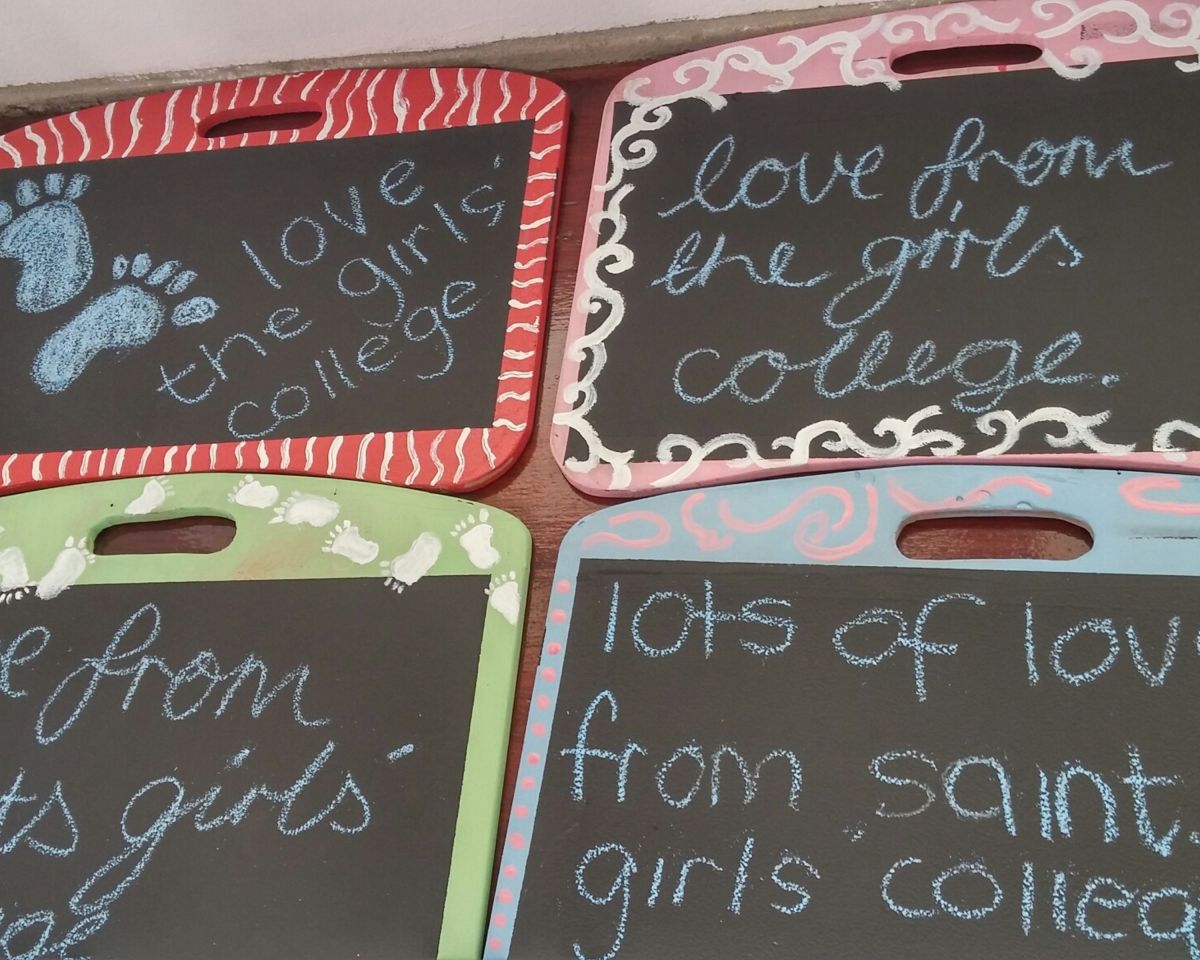 love
the girls'
college
love from
the girls
college.
from
ts girls'
lots of lov
from saint.
girls colleg